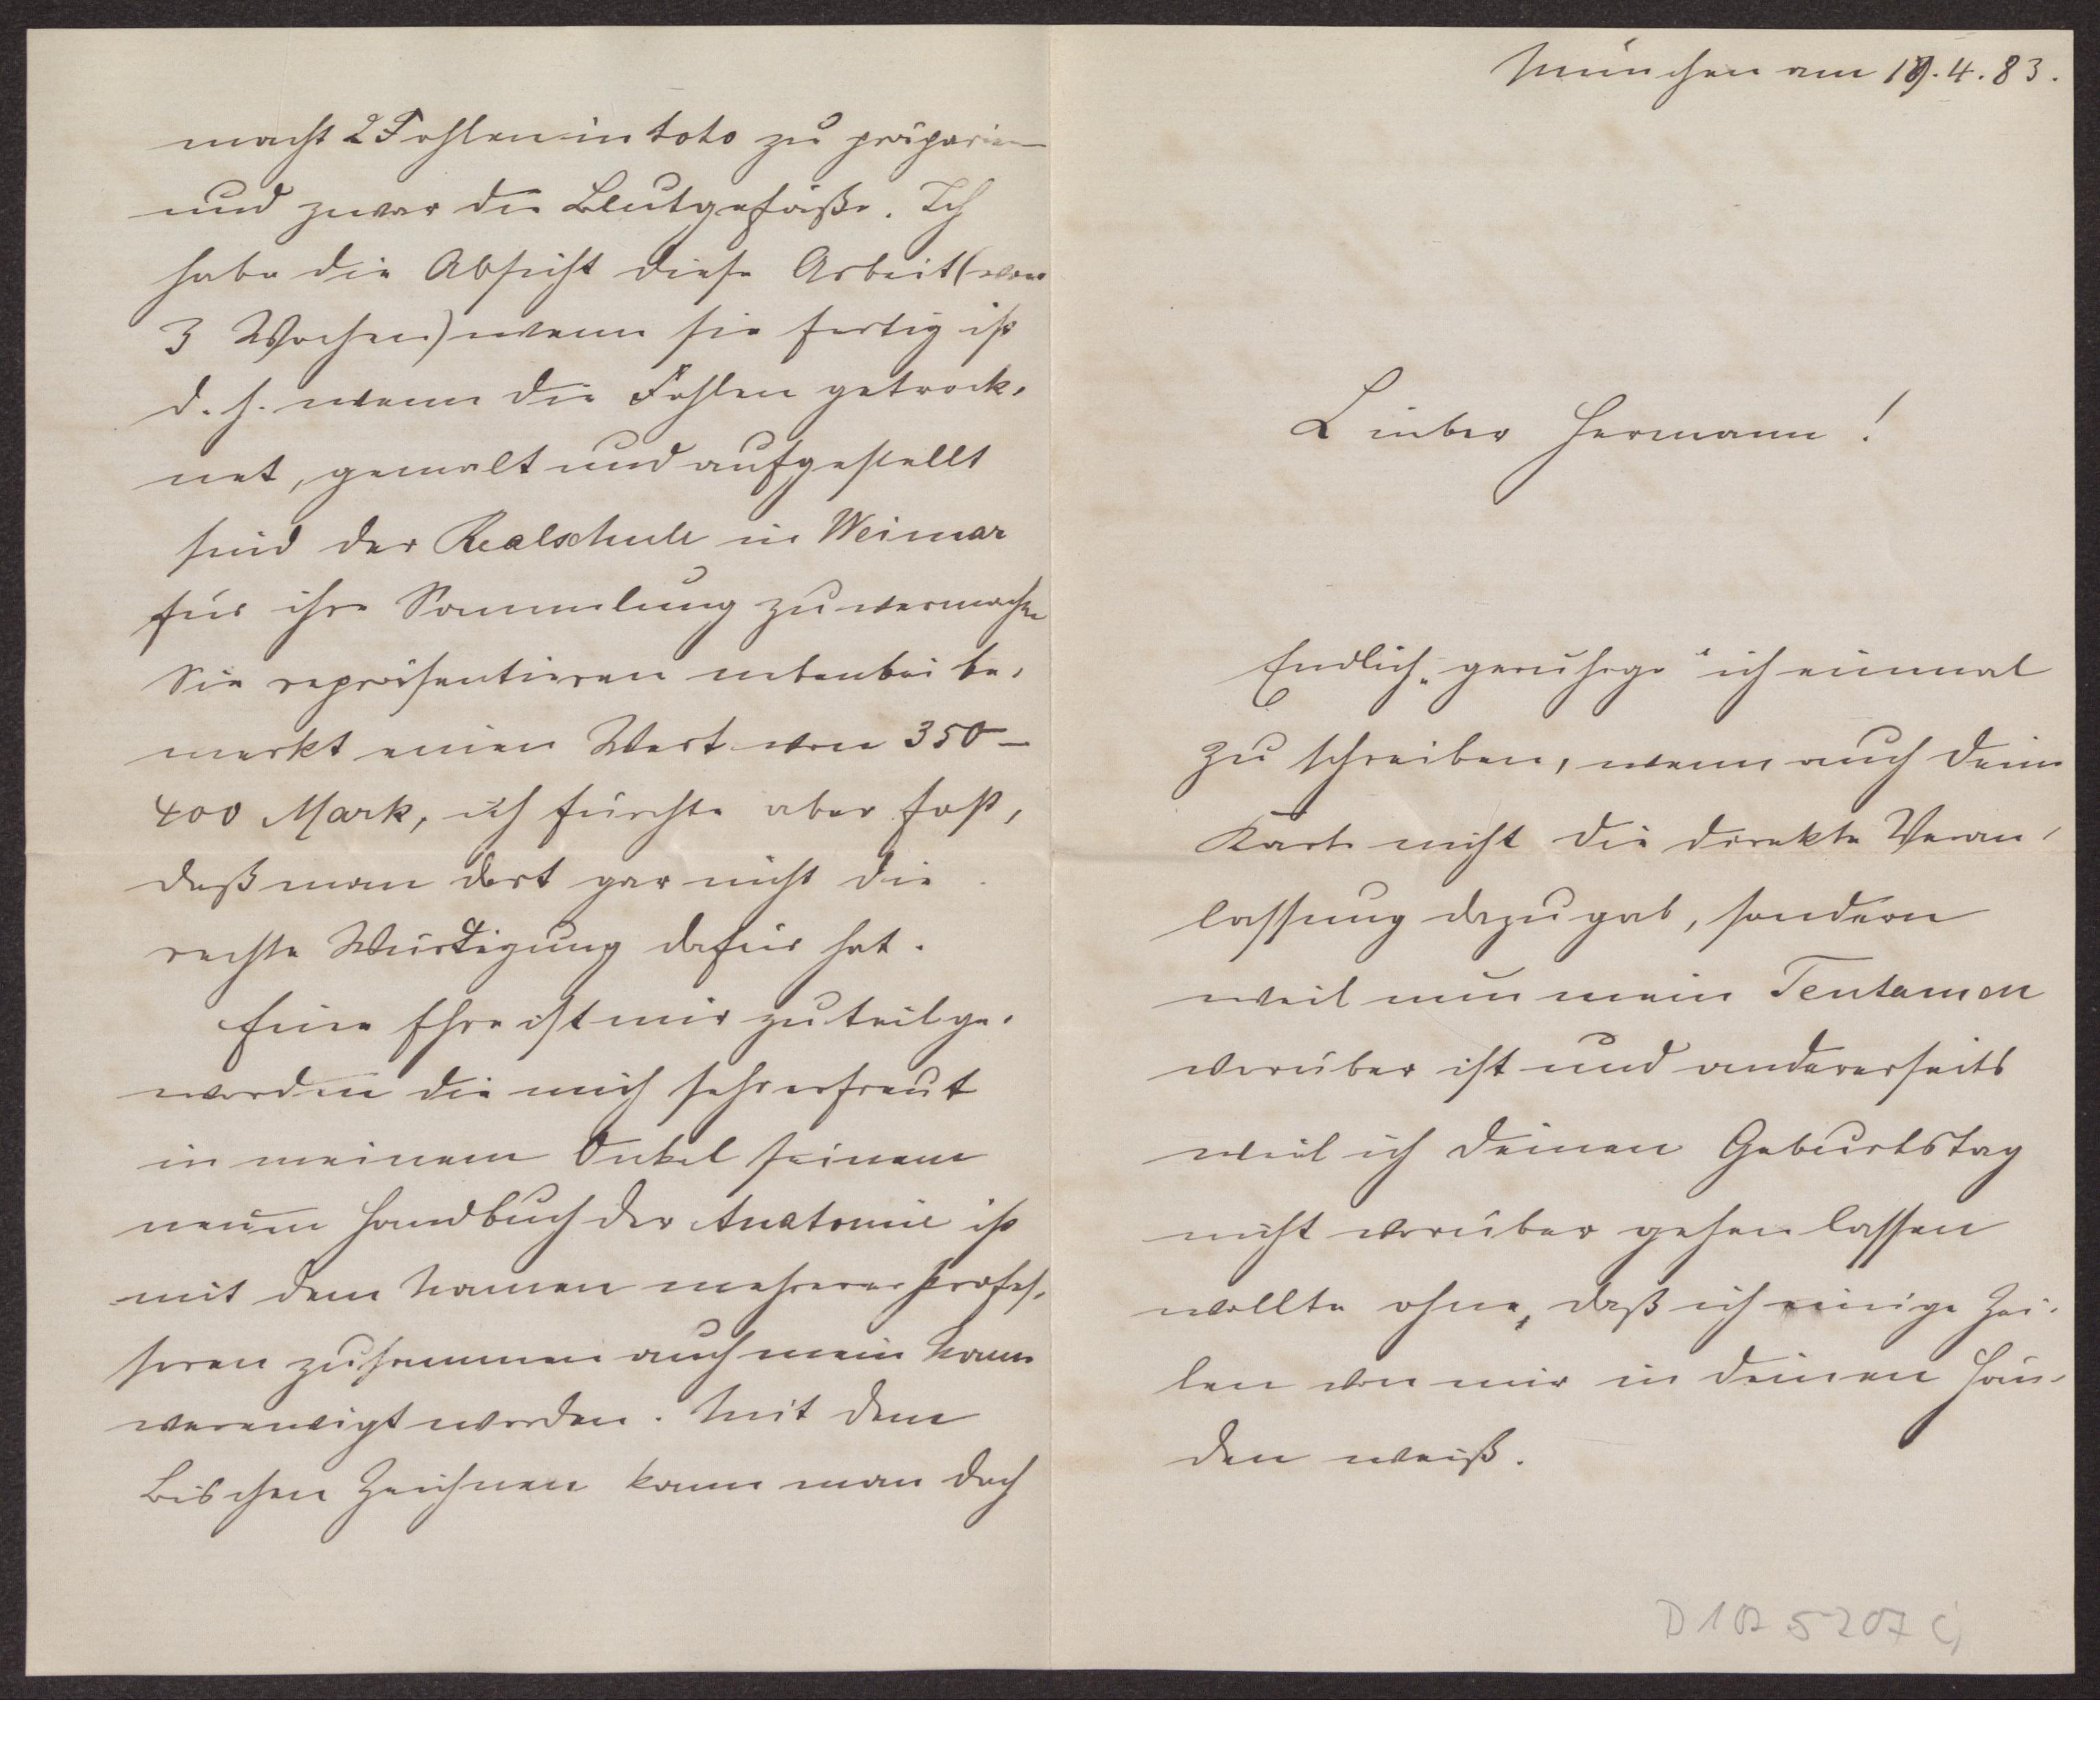 macht 2 Fohlen in toto zu präparieren
und zwar die Blutgefäße. Ich
habe die Absicht diese Arbeit (von
3 Wochen) wenn sie fertig ist
d. h. wenn die Fohlen getrock-
net, gemalt und aufgestellt
sind der Realschule in Weimar
für ihre Sammlung zu vermachen
Sie repräsentieren nebenbei be-
merkt einen Wert von 350–
400 Mark, ich fürchte aber fast,
daß man dort gar nicht die
rechte Würdigung dafür hat.
Eine Ehre ist mir zu teil ge-
worden die mich sehr erfreut
in meinem Onkel seinem
neuen Handbuch der Anatomie ist
mit dem Namen mehrerer Profes-
soren zusammen auch mein Name
verewigt worden. Mit dem
Bischen Zeichnen kann man doch
München am 19.4.83.
Lieber Hermann!
Endlich „geruhige“ ich einmal
zu schreiben, wenn auch Deine
Karte nicht die direkte Veran-
lassung dazu gab, sondern
weil nun mein Tentamen
vorüber ist und andererseits
weil ich Deinen Geburtstag
nicht vorüber gehen lassen
wollte ohne, daß ich einige Zei-
len von mir in Deinen Hän-
den weiß.
D 102 5207 c)